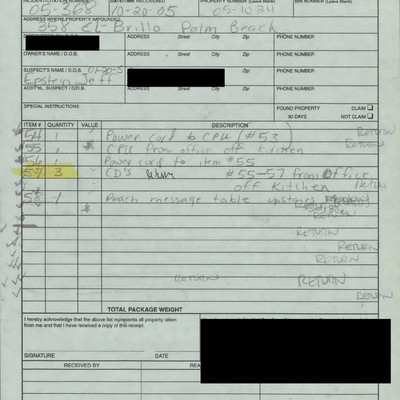 05-368 10-20-05 05-1024
ADDRESS WHERE PROPERTY IMPOUNDED
358 El-Brillo Palm Beach
ADDRESS Street City Zip PHONE NUMBER
OWNER'S NAME / D.O.B. ADDRESS Street City Zip PHONE NUMBER
SUSPECT'S NAME / D.O.B. Street City Zip PHONE NUMBER
Epstein, Jeff
ADDT'NL. SUSPECT / D.O.B. ADDRESS Street City Zip PHONE NUMBER
SPECIAL INSTRUCTIONS: FOUND PROPERTY CLAIM
90 DAYS NOT CLAIM
ITEM # QUANTITY VALUE DESCRIPTION
54 1 Power cord to CPU (#53) RETURN
55 1 CPU from office off kitchen RETURN
56 1 Power cord to item #55
57 3 CD'S #55-57 from office
off kitchen RETURN
58 1 message table upstairs
RETURN
RETURN
RETURN
RETURN
RETURN RETURN
RETURN
TOTAL PACKAGE WEIGHT
I hereby acknowledge that the above list represents all property taken
from me and that I have received a copy of this receipt.
SIGNATURE DATE
RECEIVED BY